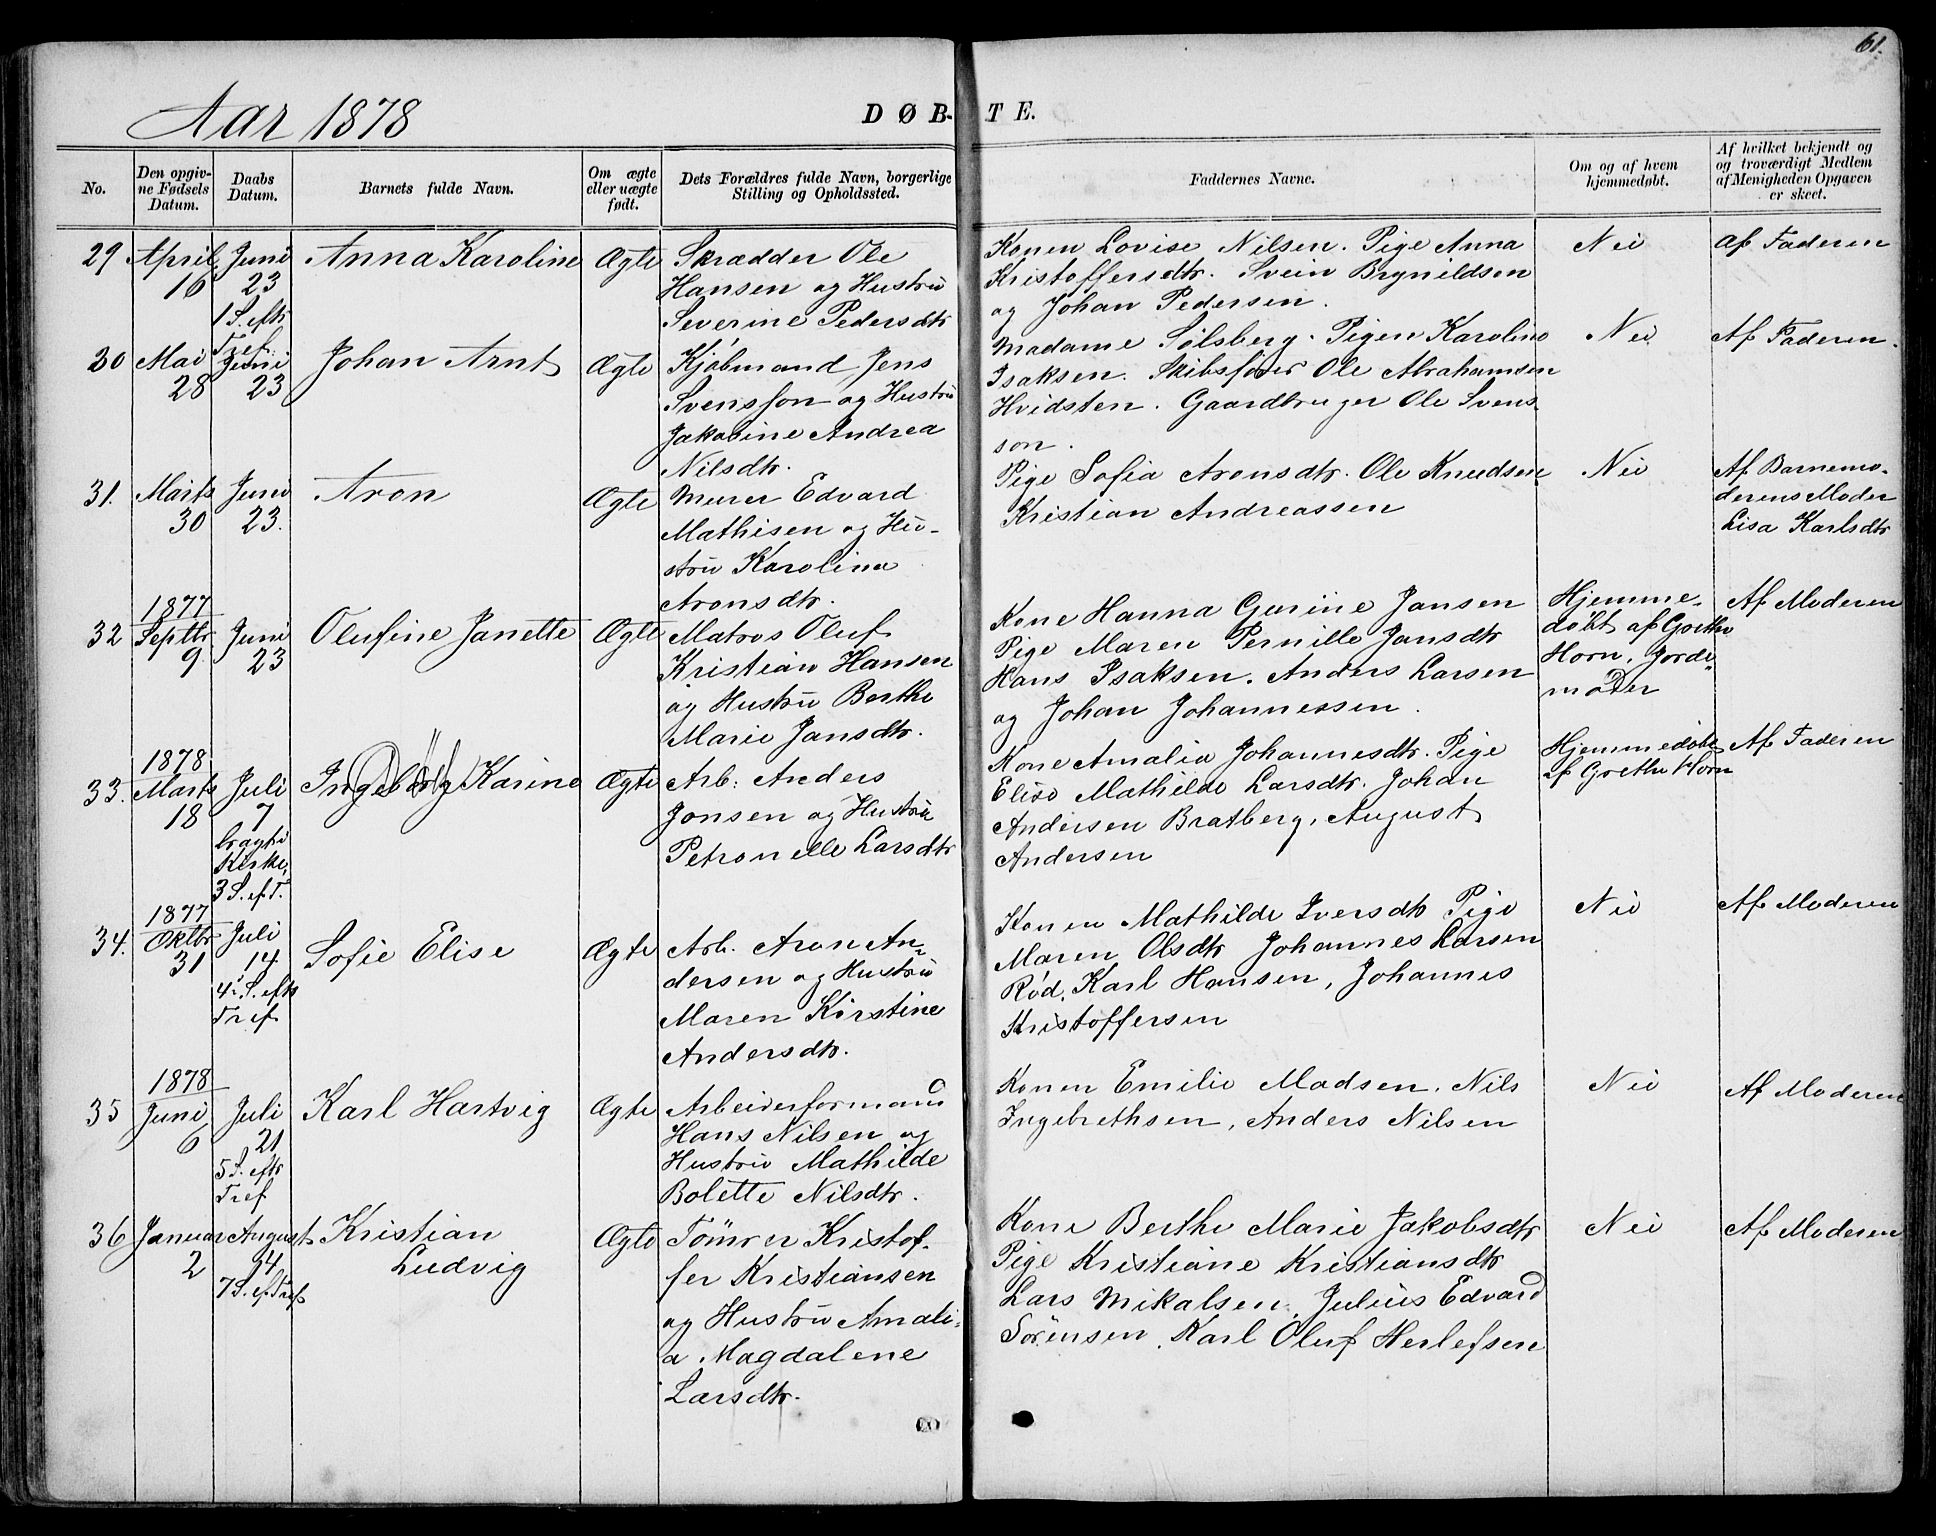 61.
Aar 1878
DØB-TE.
No.
Den opgiv-
ne Fødsels
Datum.
Daabs
Datum.
Barnets fulde Navn.
Om ægte
eller uægte
født.
Dets Forældres fulde Navn, borgerlige
Stilling og Opholdssted.
Faddernes Navne.
Om og af hvem
hjemmedøbt.
Af hvilket bekjendt og
og troværdigt Medlem
af Menigheden Opgaven
er skeet.
29
April
16
Juni
23
1 S. eftr
Tref.
Anna Karoline
Ægte
Skrædder Ole
Hansen og Hustru
Severine Pedersdtr
Konen Lovise Nilsen. Pige Anna
Kristoffersdtr. Svein Brynildsen
og Johan Pedersen.
Nei
Af Faderen
30
Mai
28
Juni
23
Johan Arnt
Ægte
Kjøbmand Jens
Svensson og Hustru
Jakobine Andrea
Nilsdtr.
Madame Solsberg. Pigen Karoline
Isaksen. Skibsfører Ole Abrahamsen
Hvidsten. Gaardbruger Ole Svens-
son.
Nei
Af Faderen.
31.
Marts
30
Juni
23.
Aron
Ægte
Murer Edvard
Mathisen og Hu-
stru Karolina
Aronsdtr.
Pige Sofia Aronsdtr. Ole Knudsen
Kristian Andreassen
Nei
Af Barnemo-
derens Moder
Lisa Karlsdtr
32
1877
Septbr
9
Juni
23
Olufine Janette
Ægte
Matros Oluf
Kristian Hansen
og Hustru Berthe
Marie Jansdtr.
Kone Hanna Gurine Jansen
Pige Maren Pernille Jansdtr
Hans Isaksen. Anders Larsen
og Johan Johannessen.
Hjemme-
døbt af Grethe
Horn, Jorde-
moder
Af Moderen
33.
1878
Marts
18
Juli
7
bragt i
Kirke,
3 S. ef. T.
Ingeborg Karine
Ægte
Arb: Anders
Jonsen og Hustru
Petronelle Larsdtr
Kone Amalia Johannesdtr. Pige
Elise Mathilde Larsdtr. Johan
Andersen Bratberg, August
Andersen
Hjemmedøbt
af Grethe Horn
Af Faderen
34.
1877
Oktbr
31
Juli
14
4. S. eftr
Tref
Sofie Elise
Ægte
Arb. Aron An-
dersen og Hustru
Maren Kirstine
Andersdtr.
Konen Mathilde Iversdtr Pige
Maren Olsdtr Johannes Larsen
Rød, Karl Hansen, Johannes
Kristoffersen
Nei
Af Moderen
35
1878
Juni
6
Juli
21
5 S. eftr
Tref
Karl Hartvig
Ægte
Arbeiderformand
Hans Nilsen og
Hustru Mathilde
Bolette Nilsdtr.
Konen Emilie Madsen. Nils
Ingebrethsen, Anders Nilsen
Nei
Af Moderen
36
Januar
2
August
4
7 S. ef. Tref
Kristian
Ludvig
Ægte
Tömrer Kristof-
fer Kristiansen
og Hustru Amali-
a Magdalene
Larsdtr.
Kone Berthe Marie Jakobsdtr
Pige Kristiane Kristiansdtr
Lars Mikalsen, Julius Edvard
Sörensen, Karl Oluf Herlefsen
Nei
Af Moderen